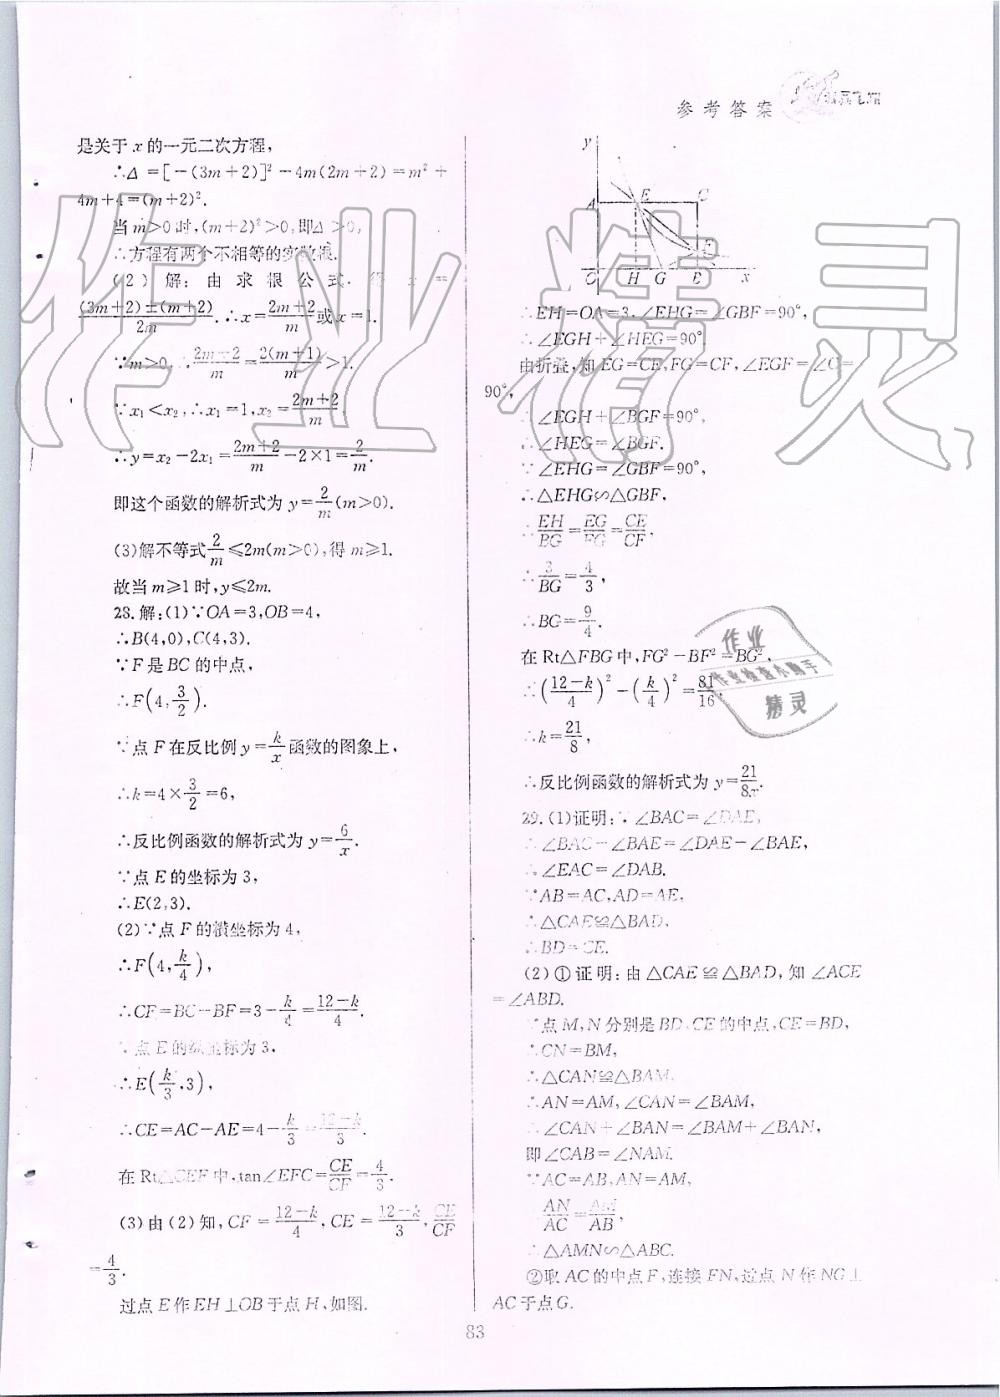 参考答案
是关于 x 的一元二次方程，
∴Δ＝[－(3m＋2)]²－4m(2m＋2)＝m²＋
4m＋4＝(m＋2)².
当 m＞0 时，(m＋2)²＞0，即Δ＞0，
∴方程有两个不相等的实数根.
(2) 解：由求根公式，得 x ＝
\frac{(3m+2)±(m+2)}{2m}.∴x＝\frac{2m+2}{m}或 x＝1.
∵m＞0，∴\frac{2m+2}{m}＝\frac{2(m+1)}{m}＞1.
∵x₁＜x₂，∴x₁＝1，x₂＝\frac{2m+2}{m}
∴y＝x₂－2x₁＝\frac{2m+2}{m}－2×1＝\frac{2}{m}.
即这个函数的解析式为 y＝\frac{2}{m}(m＞0).
(3)解不等式\frac{2}{m}≤2m(m＞0)，得 m≥1.
故当 m≥1 时，y≤2m.
28.解：(1)∵OA＝3，OB＝4，
∴B(4,0)，C(4,3).
∵F 是 BC 的中点，
∴F(4,\frac{3}{2}).
∵点 F 在反比例 y＝\frac{k}{x}函数的图象上，
∴k＝4×\frac{3}{2}＝6，
∴反比例函数的解析式为 y＝\frac{6}{x}.
∵点 E 的坐标为 3，
∴E(2,3).
(2)∵点 F 的横坐标为 4，
∴F(4,\frac{k}{4})，
∴CF＝BC－BF＝3－\frac{k}{4}＝\frac{12-k}{4}.
∵点 E 的纵坐标为 3，
∴E(\frac{k}{3},3)，
∴CE＝AC－AE＝4－\frac{k}{3}＝\frac{12-k}{3}.
在 Rt△CEF 中，tan∠EFC＝\frac{CE}{CF}＝\frac{4}{3}.
(3) 由 (2) 知，CF ＝\frac{12-k}{4}，CE ＝\frac{12-k}{3}，\frac{CE}{CF}
＝\frac{4}{3}.
过点 E 作 EH⊥OB 于点 H，如图.
y
A E C
O H G B x
∴EH＝OA＝3，∠EHG＝∠GBF＝90°，
∴∠EGH＋∠HEG＝90°，
由折叠，知 EG＝CE，FG＝CF，∠EGF＝∠C＝
90°，
∴∠EGH＋∠BGF＝90°，
∴∠HEG＝∠BGF.
∵∠EHG＝∠GBF＝90°，
∴△EHG∽△GBF，
∴\frac{EH}{BG}＝\frac{EG}{FG}＝\frac{CE}{CF}，
∴\frac{3}{BG}＝\frac{4}{3}，
∴BG＝\frac{9}{4}.
在 Rt△FBG 中，FG²－BF²＝BG²，
∴(\frac{12-k}{4})²－(\frac{k}{4})²＝\frac{81}{16}，
∴k＝\frac{21}{8}，
∴反比例函数的解析式为 y＝\frac{21}{8x}.
29.(1)证明：∵∠BAC＝∠DAE，
∴∠BAC－∠BAE＝∠DAE－∠BAE，
∴∠EAC＝∠DAB.
∵AB＝AC，AD＝AE，
∴△CAE≌△BAD，
∴BD＝CE.
(2) ①证明：由△CAE≌△BAD，知∠ACE
＝∠ABD.
∵点 M，N 分别是 BD，CE 的中点，CE＝BD，
∴CN＝BM，
∴△CAN≌△BAM.
∴AN＝AM，∠CAN＝∠BAM，
∴∠CAN＋∠BAN＝∠BAM＋∠BAN，
即∠CAB＝∠NAM.
∵AC＝AB，AN＝AM，
\frac{AN}{AC}＝\frac{AM}{AB}，
∴△AMN∽△ABC.
②取 AC 的中点 F，连接 FN，过点 N 作 NG⊥
AC 于点 G.
83
作业精灵
作业
作业检查小助手
精灵